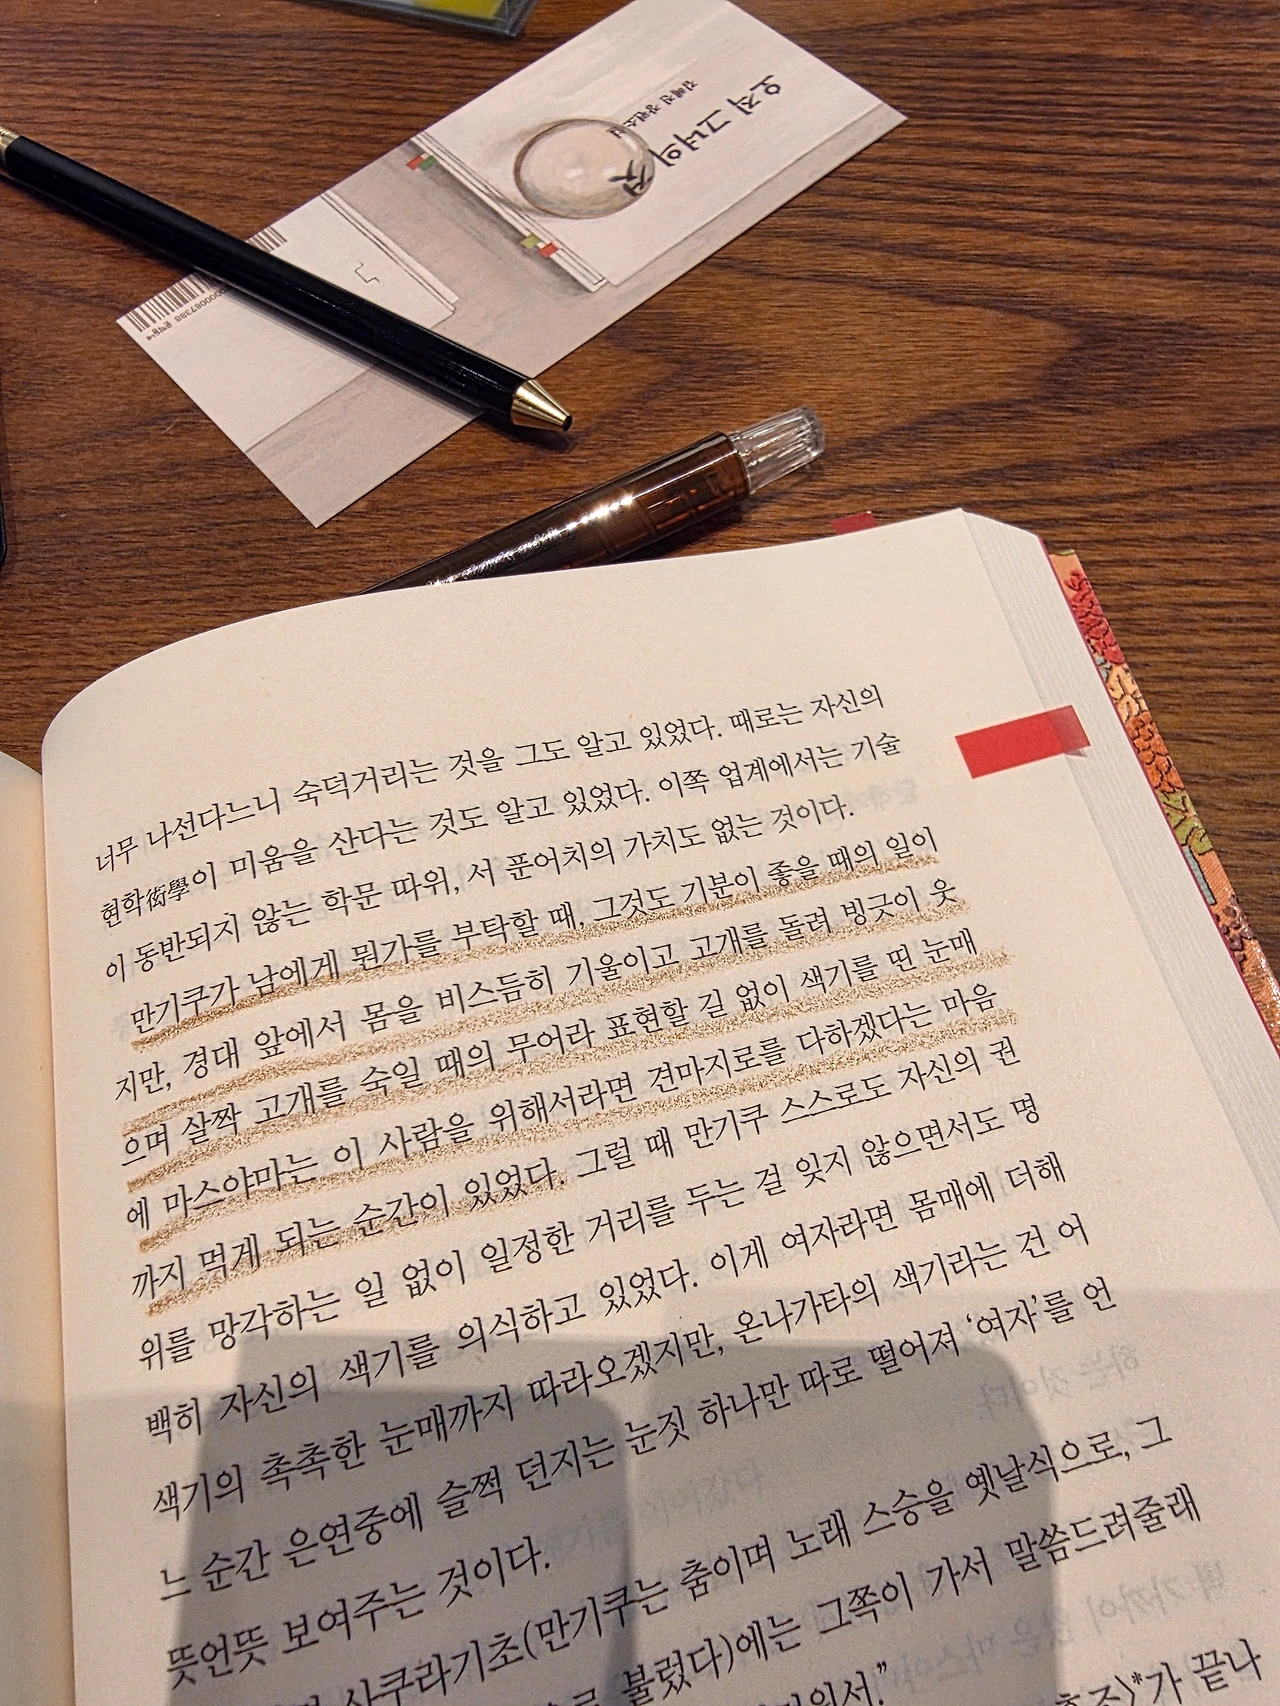 오직 그녀의 것
김혜진 장편소설
너무 나선다느니 숙덕거리는 것을 그도 알고 있었다. 때로는 자신의
현학衒學이 미움을 산다는 것도 알고 있었다. 이쪽 업계에서는 기술
이 동반되지 않는 학문 따위, 서 푼어치의 가치도 없는 것이다.
만기쿠가 남에게 뭔가를 부탁할 때, 그것도 기분이 좋을 때의 일이
지만, 경대 앞에서 몸을 비스듬히 기울이고 고개를 돌려 빙긋이 웃
으며 살짝 고개를 숙일 때의 무어라 표현할 길 없이 색기를 띤 눈매
에 마스야마는 이 사람을 위해서라면 견마지로를 다하겠다는 마음
까지 먹게 되는 순간이 있었다. 그럴 때 만기쿠 스스로도 자신의 권
위를 망각하는 일 없이 일정한 거리를 두는 걸 잊지 않으면서도 명
백히 자신의 색기를 의식하고 있었다. 이게 여자라면 몸매에 더해
색기의 촉촉한 눈매까지 따라오겠지만, 온나가타의 색기라는 건 어
느 순간 은연중에 슬쩍 던지는 눈짓 하나만 따로 떨어져 ‘여자’를 언
뜻언뜻 보여주는 것이다.
사쿠라기초(만기쿠는 춤이며 노래 스승을 옛날식으로, 그
로 불렀다)에는 그쪽이 가서 말씀드려줄래
*가 끝나